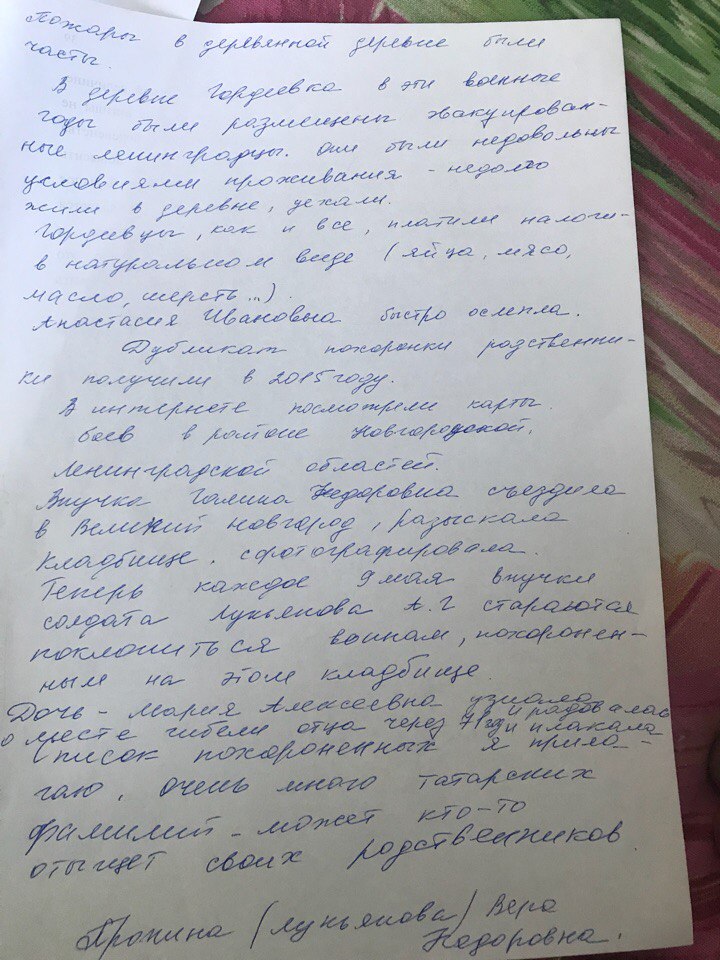 Пожары в деревянной деревне были
часты.
В деревне Гордеевка в эти военные
годы были размещены эвакуирован-
ные ленинградцы. Они были недовольны
условиями проживания - недолго
жили в деревне, уехали.
Гордеевцы, как и все, платили налоги-
в натуральном виде (яйца, мясо,
масло, шерсть...).
Анастасия Ивановна быстро ослепла.
Дубликат похоронки родственни-
ки получили в 2015 году.
В интернете посмотрели карты
боев в районе Новгородской,
Ленинградской областей.
Внучка Галина Федоровна съездила
в Великий Новгород, разыскала
кладбище, сфотографировала.
Теперь каждое 9 мая внучки
солдата Лукьянова А.Г стараются
поклониться воинам, похоронен-
ным на этом кладбище.
Дочь - Мария Алексеевна узнала
о месте гибели отца через 71 год и радовалась и плакала
Список похороненных я прила-
гаю, очень много татарских
фамилий - может кто-то
отыщет своих родственников
Пронина (Лукьянова) Вера
Федоровна.